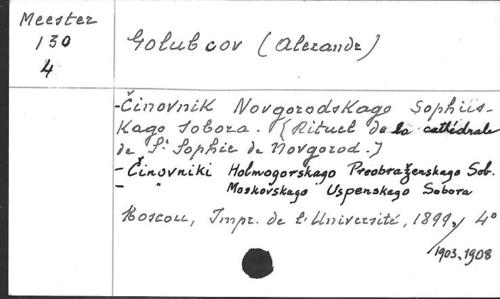 Meester
130
4
Golubcov (Alexandr)
-Činovnik Novgorodskago Sophiis-
kago Sobora. (Rituel de la cathédrale
de St Sophie de Novgorod.)
-Činovniki Holmogorskago Preobraženskago Sob.
- " Moskovskago Uspenskago Sobora
Moscou, Impr. de l'Université, 1899, 4°
1903, 1908